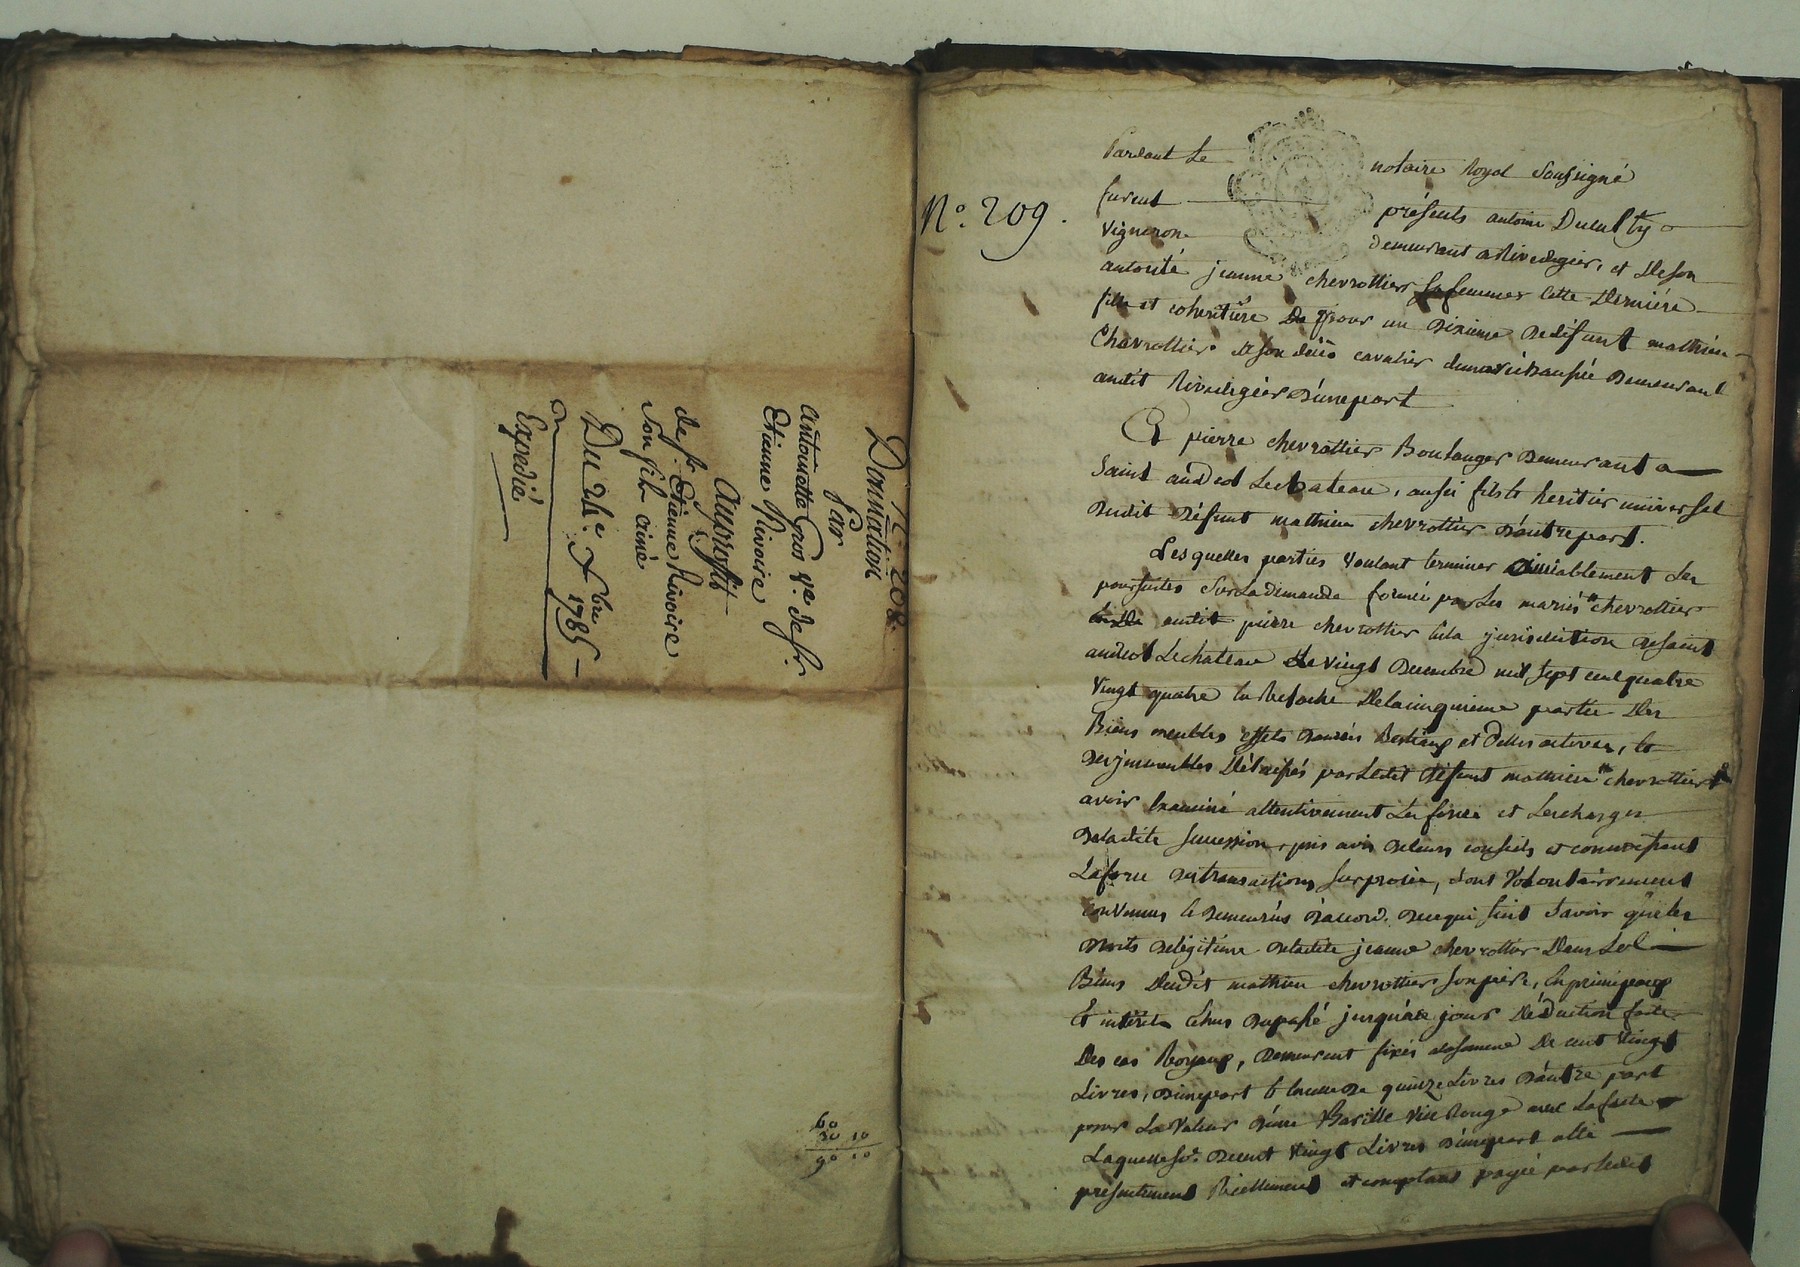 N° 208.
Donnation
par
antoinette Gros v.e de fr.
Etienne Rivoire
auproffit
de fr. Etienne Rivoire
son fils ainé
Du 24.e Xbre 1785
Expedié
60
30 10
90 10
N.o 209.
Pardevant Le notaire Royal Soussigné
furent présents antoine
Vigneron demeurant a Rivedegier, et de son
autorité jeanne chevrottier sa femme, cette derniére
fille et coheritiere pour un dixieme dedéfunt mathieu
Chevrottier cavalier demaréchaussée demeurant
audit Rivedegier d'unepart
Et pierre chevrottier Boulanger demeurant a
Saint andeol Lechateau, aussi fils & heritier universel
dudit défunt mathieu chevrottier d'autrepart.
Lesquelles parties voulant terminer amiablement les
poursuites sur la demande formée par les mariés chevrottier
audit pierre chevrottier en la jurisdiction desaint
andeol Lechateau le vingt decembre mil sept cent quatre
vingt quatre en relache delacinquieme partie des
Biens meubles effets danrées Bestiaux et dettes actives, et
des jmmeubles délaissés par ledit défunt mathieu chevrottier
avoir examiné attentivement les forces et les charges
deladite succession, pris avis deleurs conseils et connoissant
Laforce des transactions sur procès, sont Volontairement
convenus & demeurés d'accord de cequi suit savoir que les
droits delégitime deladite jeanne chevrottier dans les
Biens dudit mathieu chevrottier son père, en principaux
et intérêts échus dupassé jusqu'àce jour déduction faite
des cas Royaux, demeurent fixés alasomme de cent vingt
Livres, d'unepart & celle de quinze Livres d'autre part
pour la valeur d'une Barille vin Rouge avec la futte
Laquelle se. de cent vingt Livres d'unepart a été
présentement Réellement et comptant payée par ledit